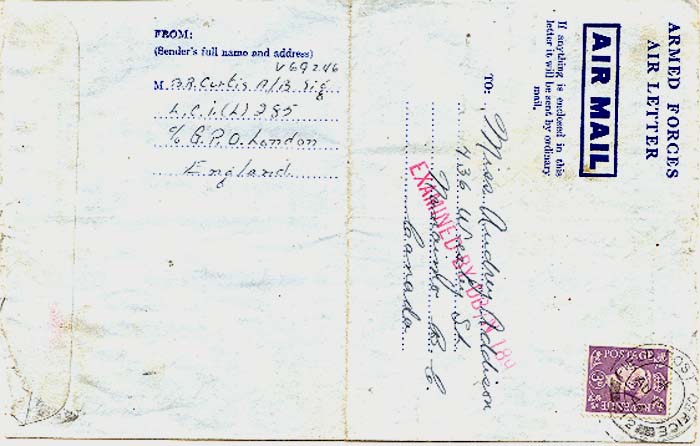 FROM:
(Sender's full name and address)
V69246
M B.R. Curtis A/B Sig
L.C.I.(L) 285
c/o G.P.O. London
England
ARMED FORCES
AIR LETTER
AIR MAIL
If anything is enclosed in this
letter it will be sent by ordinary
mail.
TO:
Miss Audrey Addison
436 Wesley St.
Nanaimo B.C.
Canada
EXAMINED BY DB/N 180
POSTAGE
REVENUE
3D
POST OFFICE